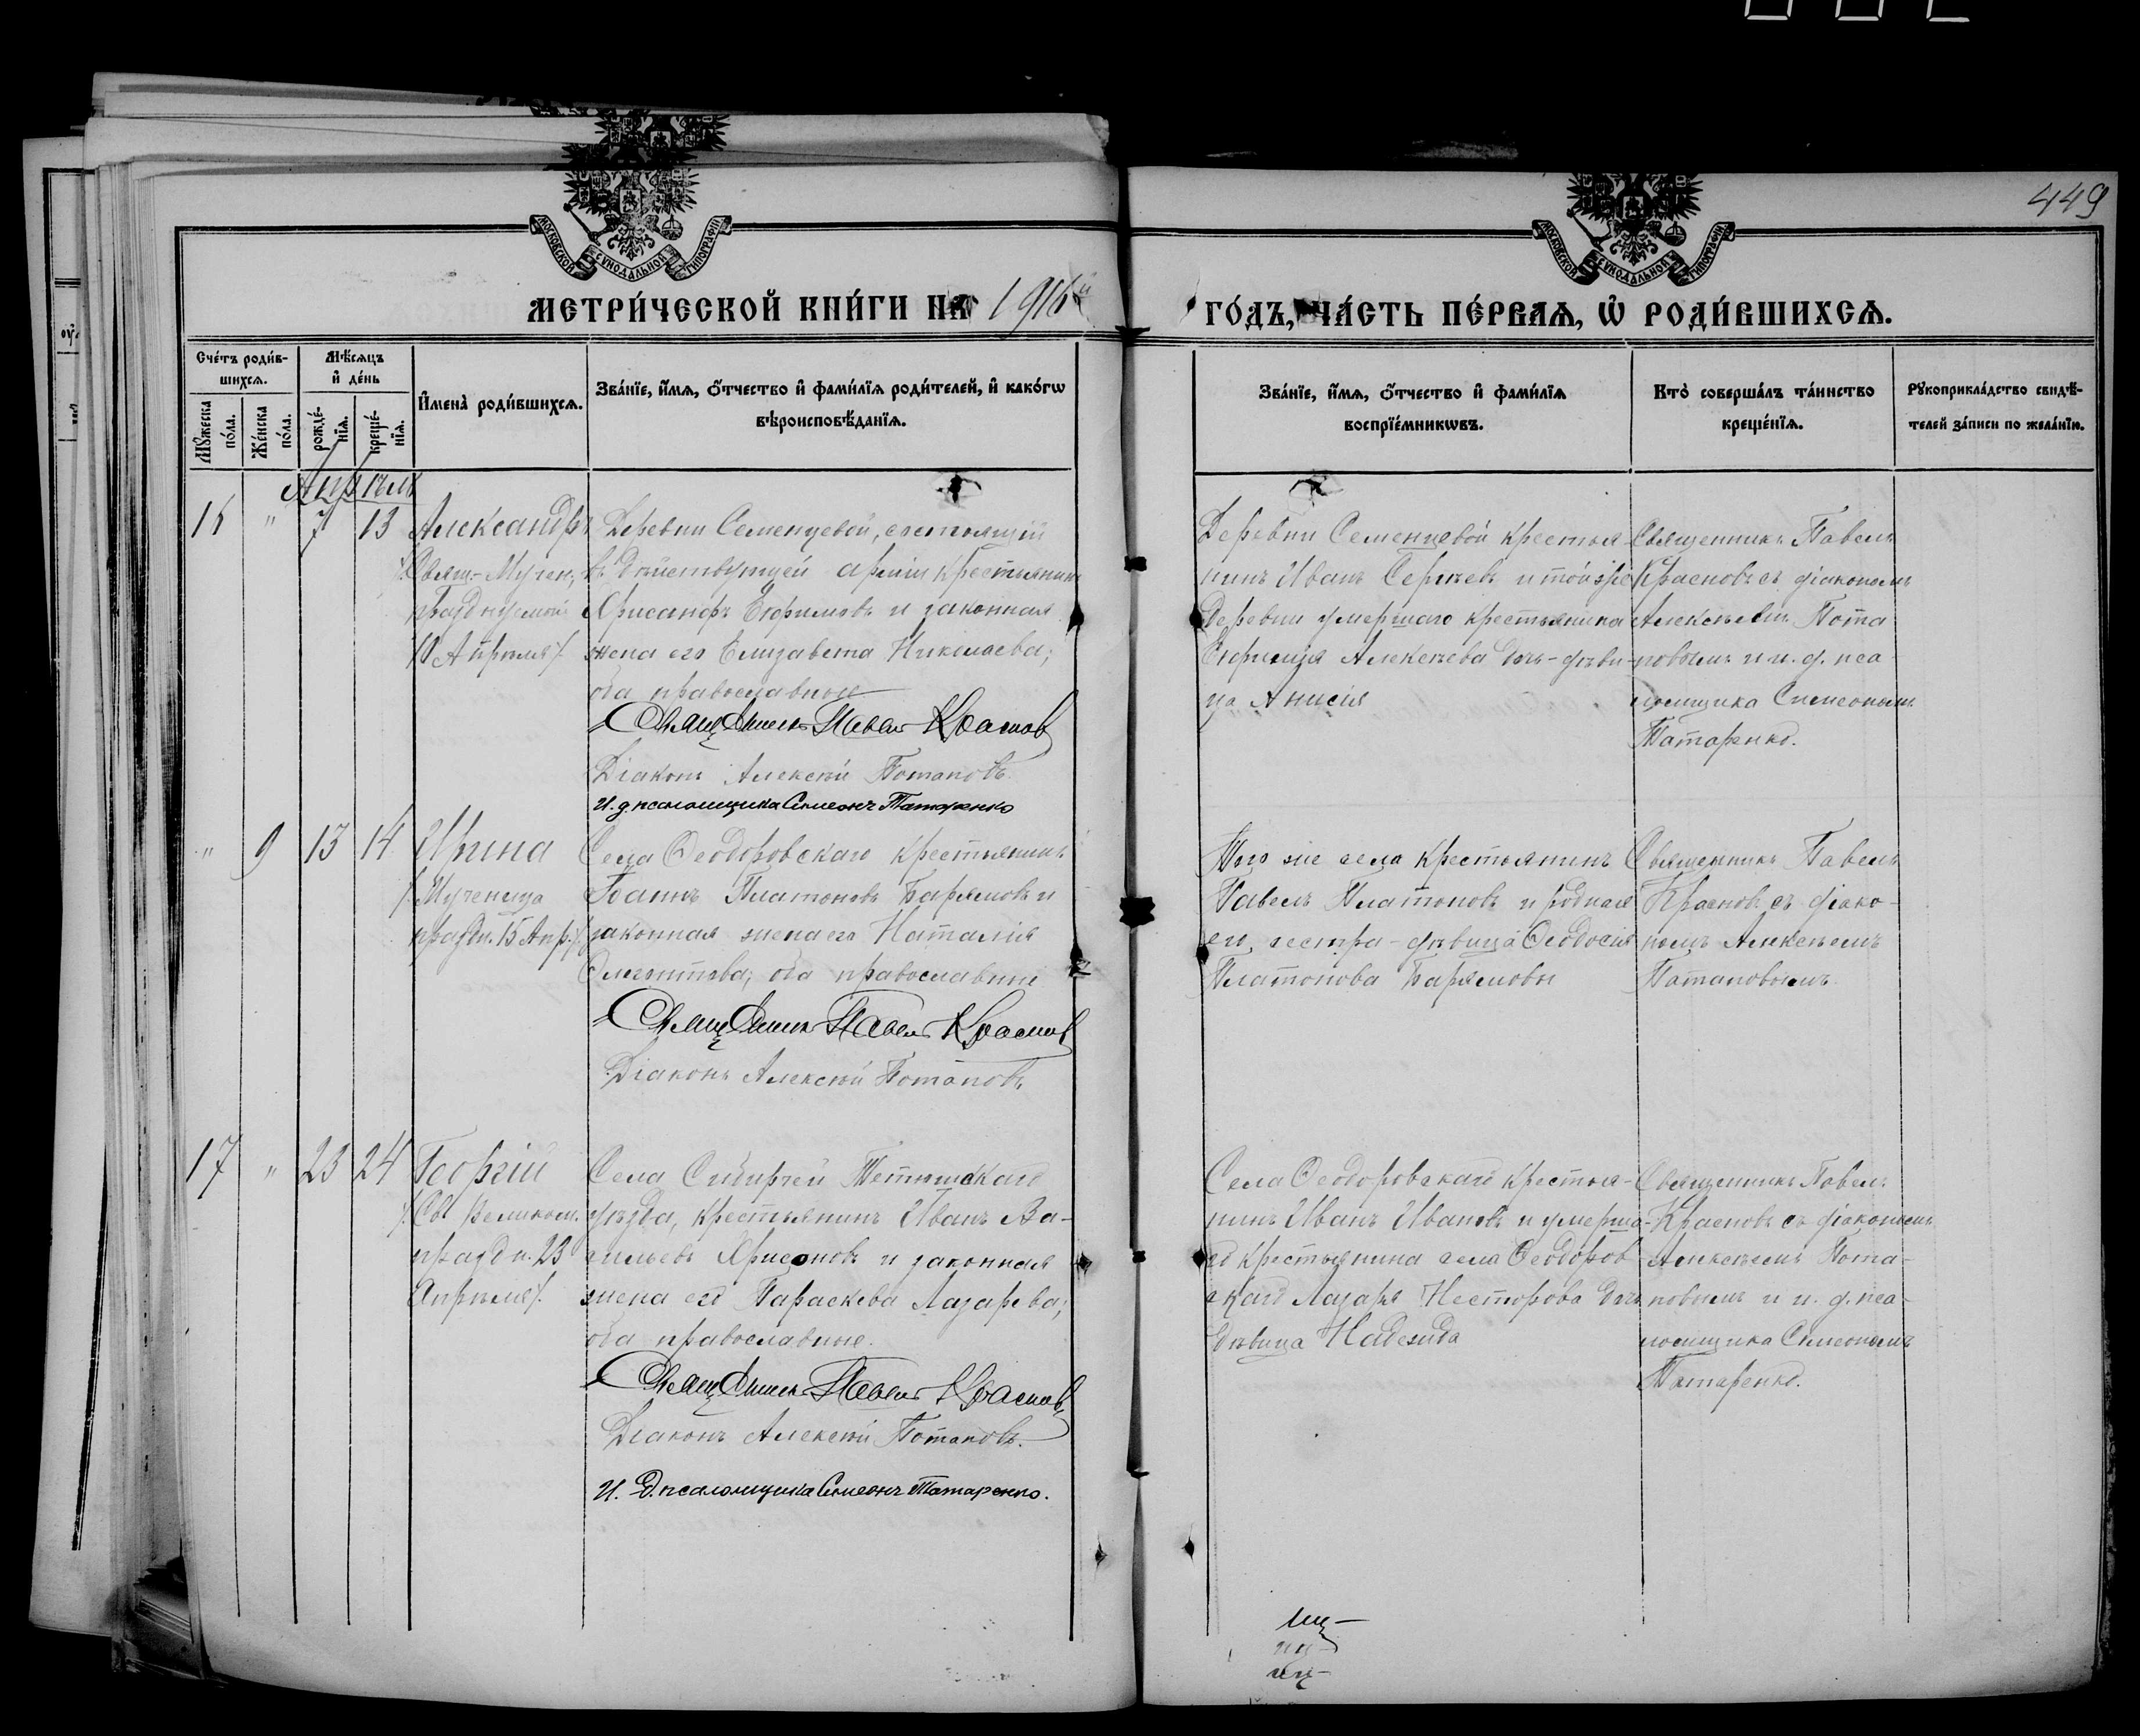 449
МОСКОВСКОЙ СѴНОДАЛЬНОЙ ТИПОГРАФІИ
МОСКОВСКОЙ СѴНОДАЛЬНОЙ ТИПОГРАФІИ
МЕТРИ́ЧЕСКОЙ КНИ́ГИ НА 1916й
ГО́ДЪ, ЧА́СТЬ ПЕ́РВАѦ, Ѡ҆ РОДИ́ВШИХСѦ.
Сче́тъ роди́в-
шихсѧ.
Мѣ́сѧцъ
и҆ де́нь
Мꙋ́жеска по́ла.
Же́нска по́ла.
рожде́-
нїѧ.
креще́-
нїѧ.
И҆мена̀ роди́вшихсѧ.
Зва́нїе, и҆́мѧ, ѻ҆́тчество и҆ фами́лїѧ роди́телей, и҆ како́гѡ
вѣроисповѣ́данїѧ.
Зва́нїе, и҆́мѧ, ѻ҆́тчество и҆ фами́лїѧ
воспрїе́мникѡвъ.
Кто̀ соверша́лъ та́инство
креще́нїѧ.
Рꙋкоприкла́дство свидѣ́-
телей за́писи по жела́нїю.
Апрѣль
16 " 7 13 Александръ
/Свящ.-Мучен.,
празднуемый
10 Апрѣля/.
Деревни Семенцевой, состоящій
въ дѣйствующей арміи крестьянинъ
Хрисанфъ Евфимовъ и законная
жена его Елизавета Николаева;
оба православные
Священникъ Павелъ Красновъ
Діаконъ Алексѣй Потаповъ.
И. д. псаломщика Симеонъ Татаренко
Деревни Семенцевой крестья-
нинъ Иванъ Сергѣевъ и той же
деревни умершаго крестьянина
Евфимія Алексѣева дочь-дѣви-
ца Анисія
Священникъ Павелъ
Красновъ съ діакономъ
Алексѣемъ Пота
повымъ и и. д. пса
ломщика Симеономъ
Татаренко.
" 9 13 14 Ирина
/Мученица
праздн. 15 Апр./.
Села Ѳеодоровскаго крестьянинъ
Іоаннъ Платоновъ и
законная жена его Наталія
оба православные
Священникъ Павелъ Красновъ
Діаконъ Алексѣй Потаповъ
Того же села крестьянинъ
Павелъ Платоновъ и родная
его сестра-дѣвица Ѳеодосія
Платонова
Священникъ Павелъ
Красновъ съ діако-
номъ Алексѣемъ
Потаповымъ.
17 " 23 24 Георгій
/Св. Великом.
праздн. 23
Апрѣля/.
Села Сибирчей Тетюшскаго
уѣзда, крестьянинъ Иванъ Ва-
сильевъ и законная
жена его Параскева Лазарева;
оба православные.
Священникъ Павелъ Красновъ
Діаконъ Алексѣй Потаповъ.
И. д. псаломщика Симеонъ Татаренко.
Села Ѳеодоровскаго крестья-
нинъ Иванъ Ивановъ и умерша-
го крестьянина села Ѳеодоров
скаго Лазаря Несторова дочь
дѣвица Надежда
Священникъ Павелъ
Красновъ съ діакономъ
Алексѣемъ Пота-
повымъ и и. д. пса-
ломщика Симеономъ
Татаренко.